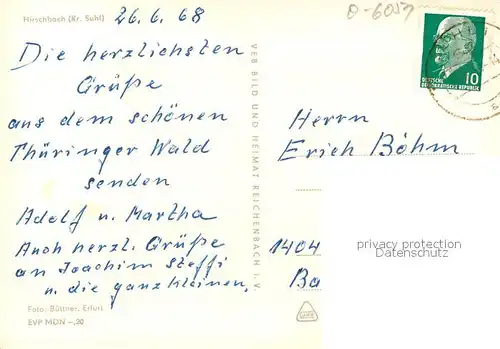 Hirschbach (Kr. Suhl)
26.6.68
Die herzlichsten
Grüße
aus dem schönen
Thüringer Wald
senden
Adolf u. Martha
Auch herzl. Grüße
an Joachim Steffi
u. die ganz kleinen.
Foto: Büttner, Erfurt
EVP MDN -,20
VEB BILD UND HEIMAT REICHENBACH I. V.
0-6057
DEUTSCHE
DEMOKRATISCHE REPUBLIK
10
Herrn
Erich Böhm
1404
Ba
privacy protection
Datenschutz